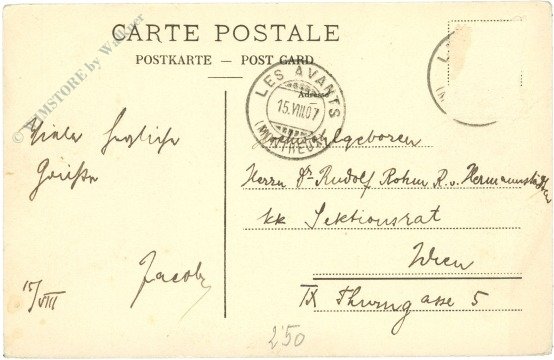 CARTE POSTALE
POSTKARTE — POST CARD
LES AVANTS
15.VIII.07
(MONTREUX)
Adresse
© AIMSTORE by Wallner
Viele herzliche
Grüße
Jacob
15/VIII
Hochwohlgeboren
Herrn Dr Rudolf Rohm R. v. Hermannstädten
kk Sektionsrat
Wien
IX Thurngasse 5
250